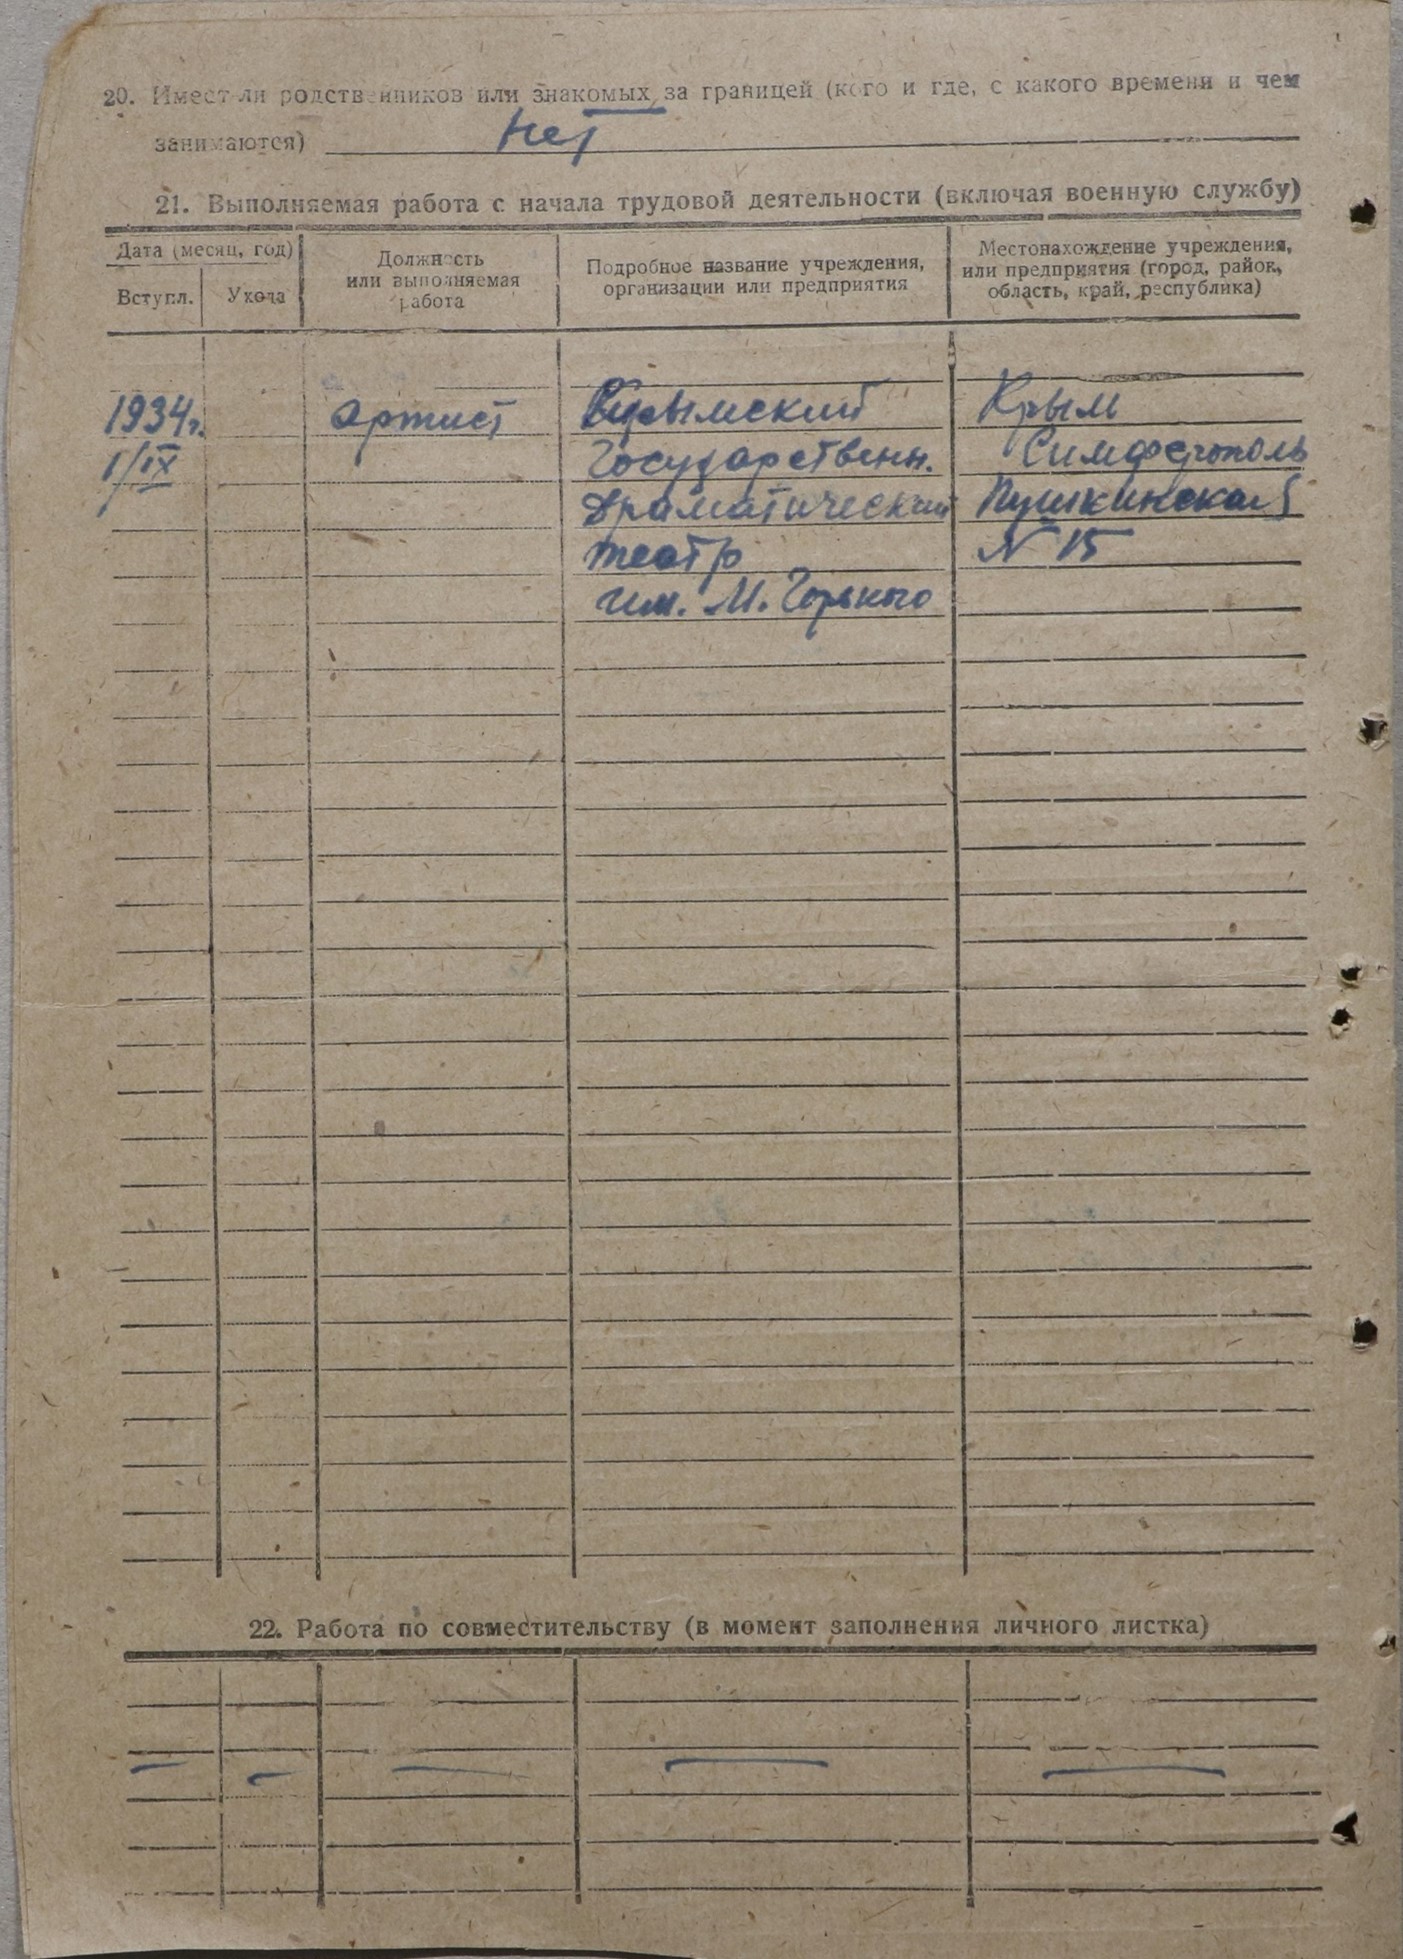 20. Имеет ли родственников или знакомых за границей (кого и где, с какого времени и чем
занимаются) Нет
21. Выполняемая работа с начала трудовой деятельности (включая военную службу)
Дата (месяц, год)
Вступл.
Ухода
Должность
или выполняемая
работа
Подробное название учреждения,
организации или предприятия
Местонахождение учреждения,
или предприятия (город, район,
область, край, республика)
1934г. артист Крымский Крым
1/IX Государственн. Симферополь
Драматический Пушкинская
театр N 15
им. М. Горького
22. Работа по совместительству (в момент заполнения личного листка)